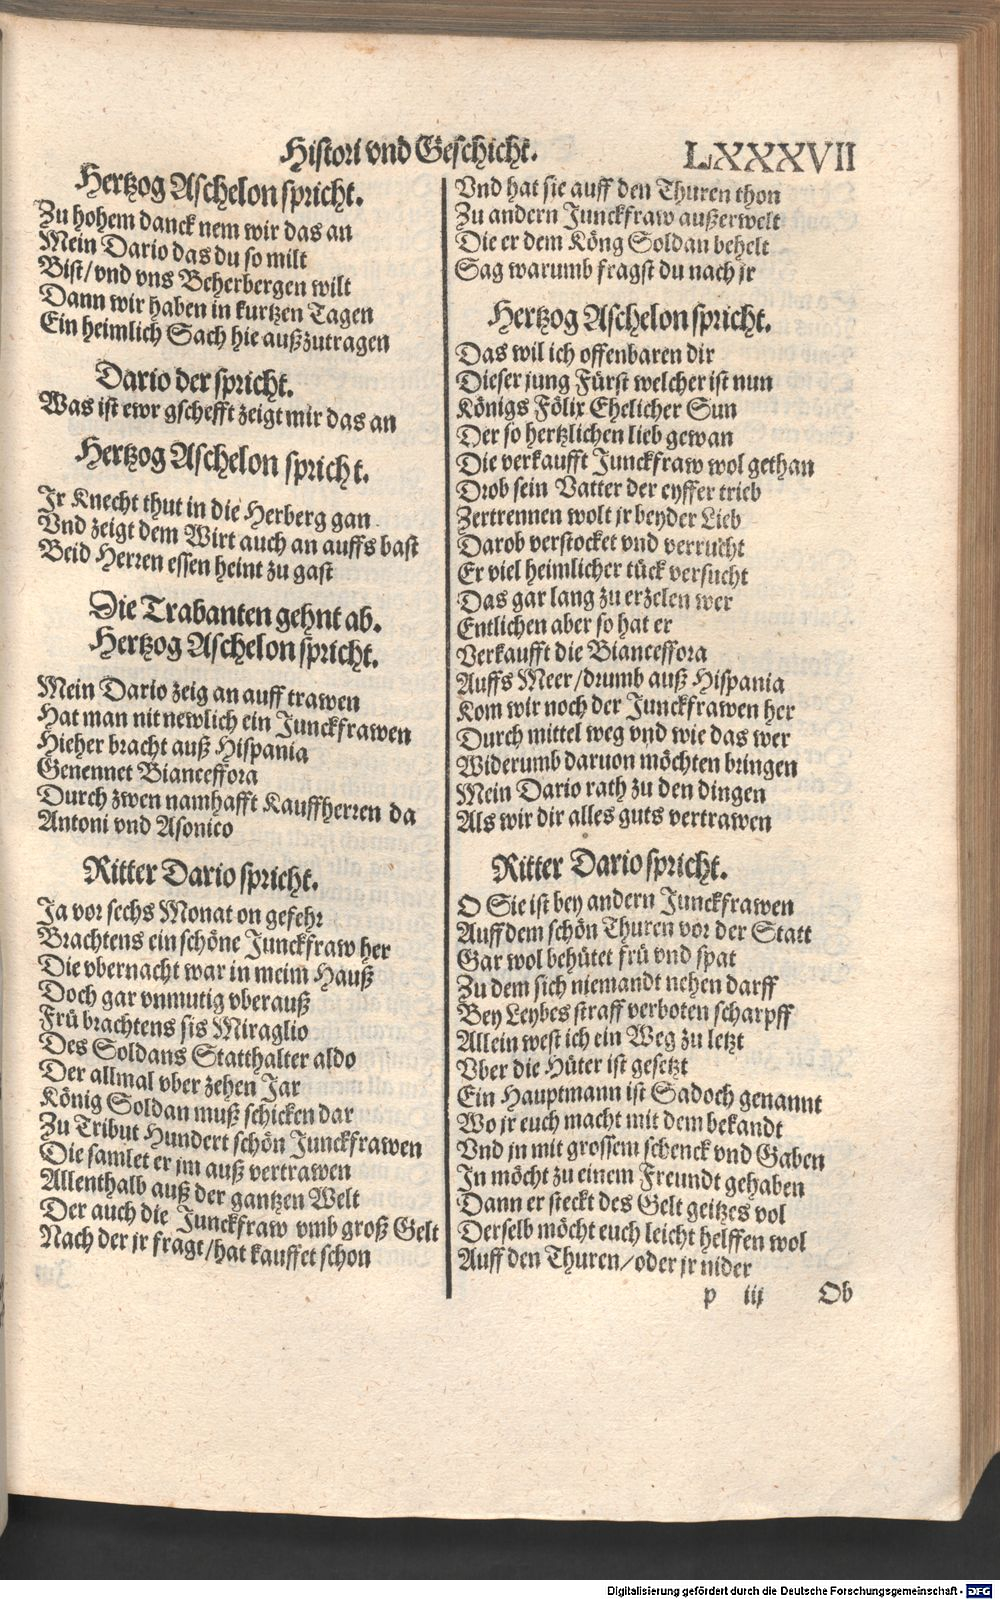 Histori vnd Geschicht. LXXXVII
Hertzog Aschelon spricht.
Zu hohem danck nem wir das an
Mein Dario das du so milt
Bist/vnd vns Beherbergen wilt
Dann wir haben in kurtzen Tagen
Ein heimlich Sach hie außzutragen
Dario der spricht.
Was ist ewr gschefft zeigt mir das an
Hertzog Aschelon spricht.
Jr Knecht thut in die Herberg gan
Vnd zeigt dem Wirt auch an auffs bast
Beid Herren essen heint zu gast
Die Trabanten gehnt ab.
Hertzog Aschelon spricht.
Mein Dario zeig an auff trawen
Hat man nit newlich ein Junckfrawen
Hieher bracht auß Hispania
Genennet Bianceffora
Durch zwen namhafft Kauffherren da
Antoni vnd Asonico
Ritter Dario spricht.
Ja vor sechs Monat on gefehr
Brachtens ein schöne Junckfraw her
Die vbernacht war in meim Hauß
Doch gar vnmutig vberauß
Frü brachtens sis Miraglio
Des Soldans Statthalter aldo
Der allmal vber zehen Jar
König Soldan muß schicken dar
Zu Tribut Hundert schön Junckfrawen
Die samlet er jm auß vertrawen
Allenthalb auß der gantzen Welt
Der auch die Junckfraw vmb groß Gelt
Nach der jr fragt/hat kauffet schon
Vnd hat sie auff den Thuren thon
Zu andern Junckfraw außerwelt
Die er dem Köng Soldan behelt
Sag warumb fragst du nach jr
Hertzog Aschelon spricht.
Das wil ich offenbaren dir
Dieser jung Fürst welcher ist nun
Königs Fölix Ehelicher Sun
Der so hertzlichen lieb gewan
Die verkaufft Junckfraw wol gethan
Drob sein Vatter der eyffer trieb
Zertrennen wolt jr beyder Lieb
Darob verstocket vnd verrucht
Er viel heimlicher tück versucht
Das gar lang zu erzelen wer
Entlichen aber so hat er
Verkaufft die Bianceffora
Auffs Meer/drumb auß Hispania
Kom wir noch der Junckfrawen her
Durch mittel weg vnd wie das wer
Widerumb daruon möchten bringen
Mein Dario rath zu den dingen
Als wir dir alles guts vertrawen
Ritter Dario spricht.
O Sie ist bey andern Junckfrawen
Auff dem schön Thuren vor der Statt
Gar wol behütet frü vnd spat
Zu dem sich niemandt nehen darff
Bey Leybes straff verboten scharpff
Allein west ich ein Weg zu letzt
Vber die Hüter ist gesetzt
Ein Hauptmann ist Sadoch genannt
Wo jr euch macht mit dem bekandt
Vnd jn mit grossem schenck vnd Gaben
Jn möcht zu einem Freundt gehaben
Dann er steckt des Gelt geitzes vol
Derselb möcht euch leicht helffen wol
Auff den Thuren/oder jr nider
p iij Ob
Digitalisierung gefördert durch die Deutsche Forschungsgemeinschaft - DFG